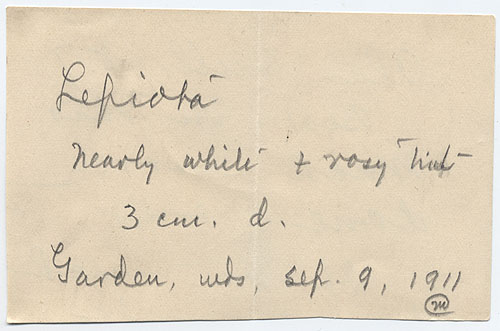 Lepiota
nearly white + rosy tint
3 cm. d.
Garden, wds, sep. 9, 1911
m